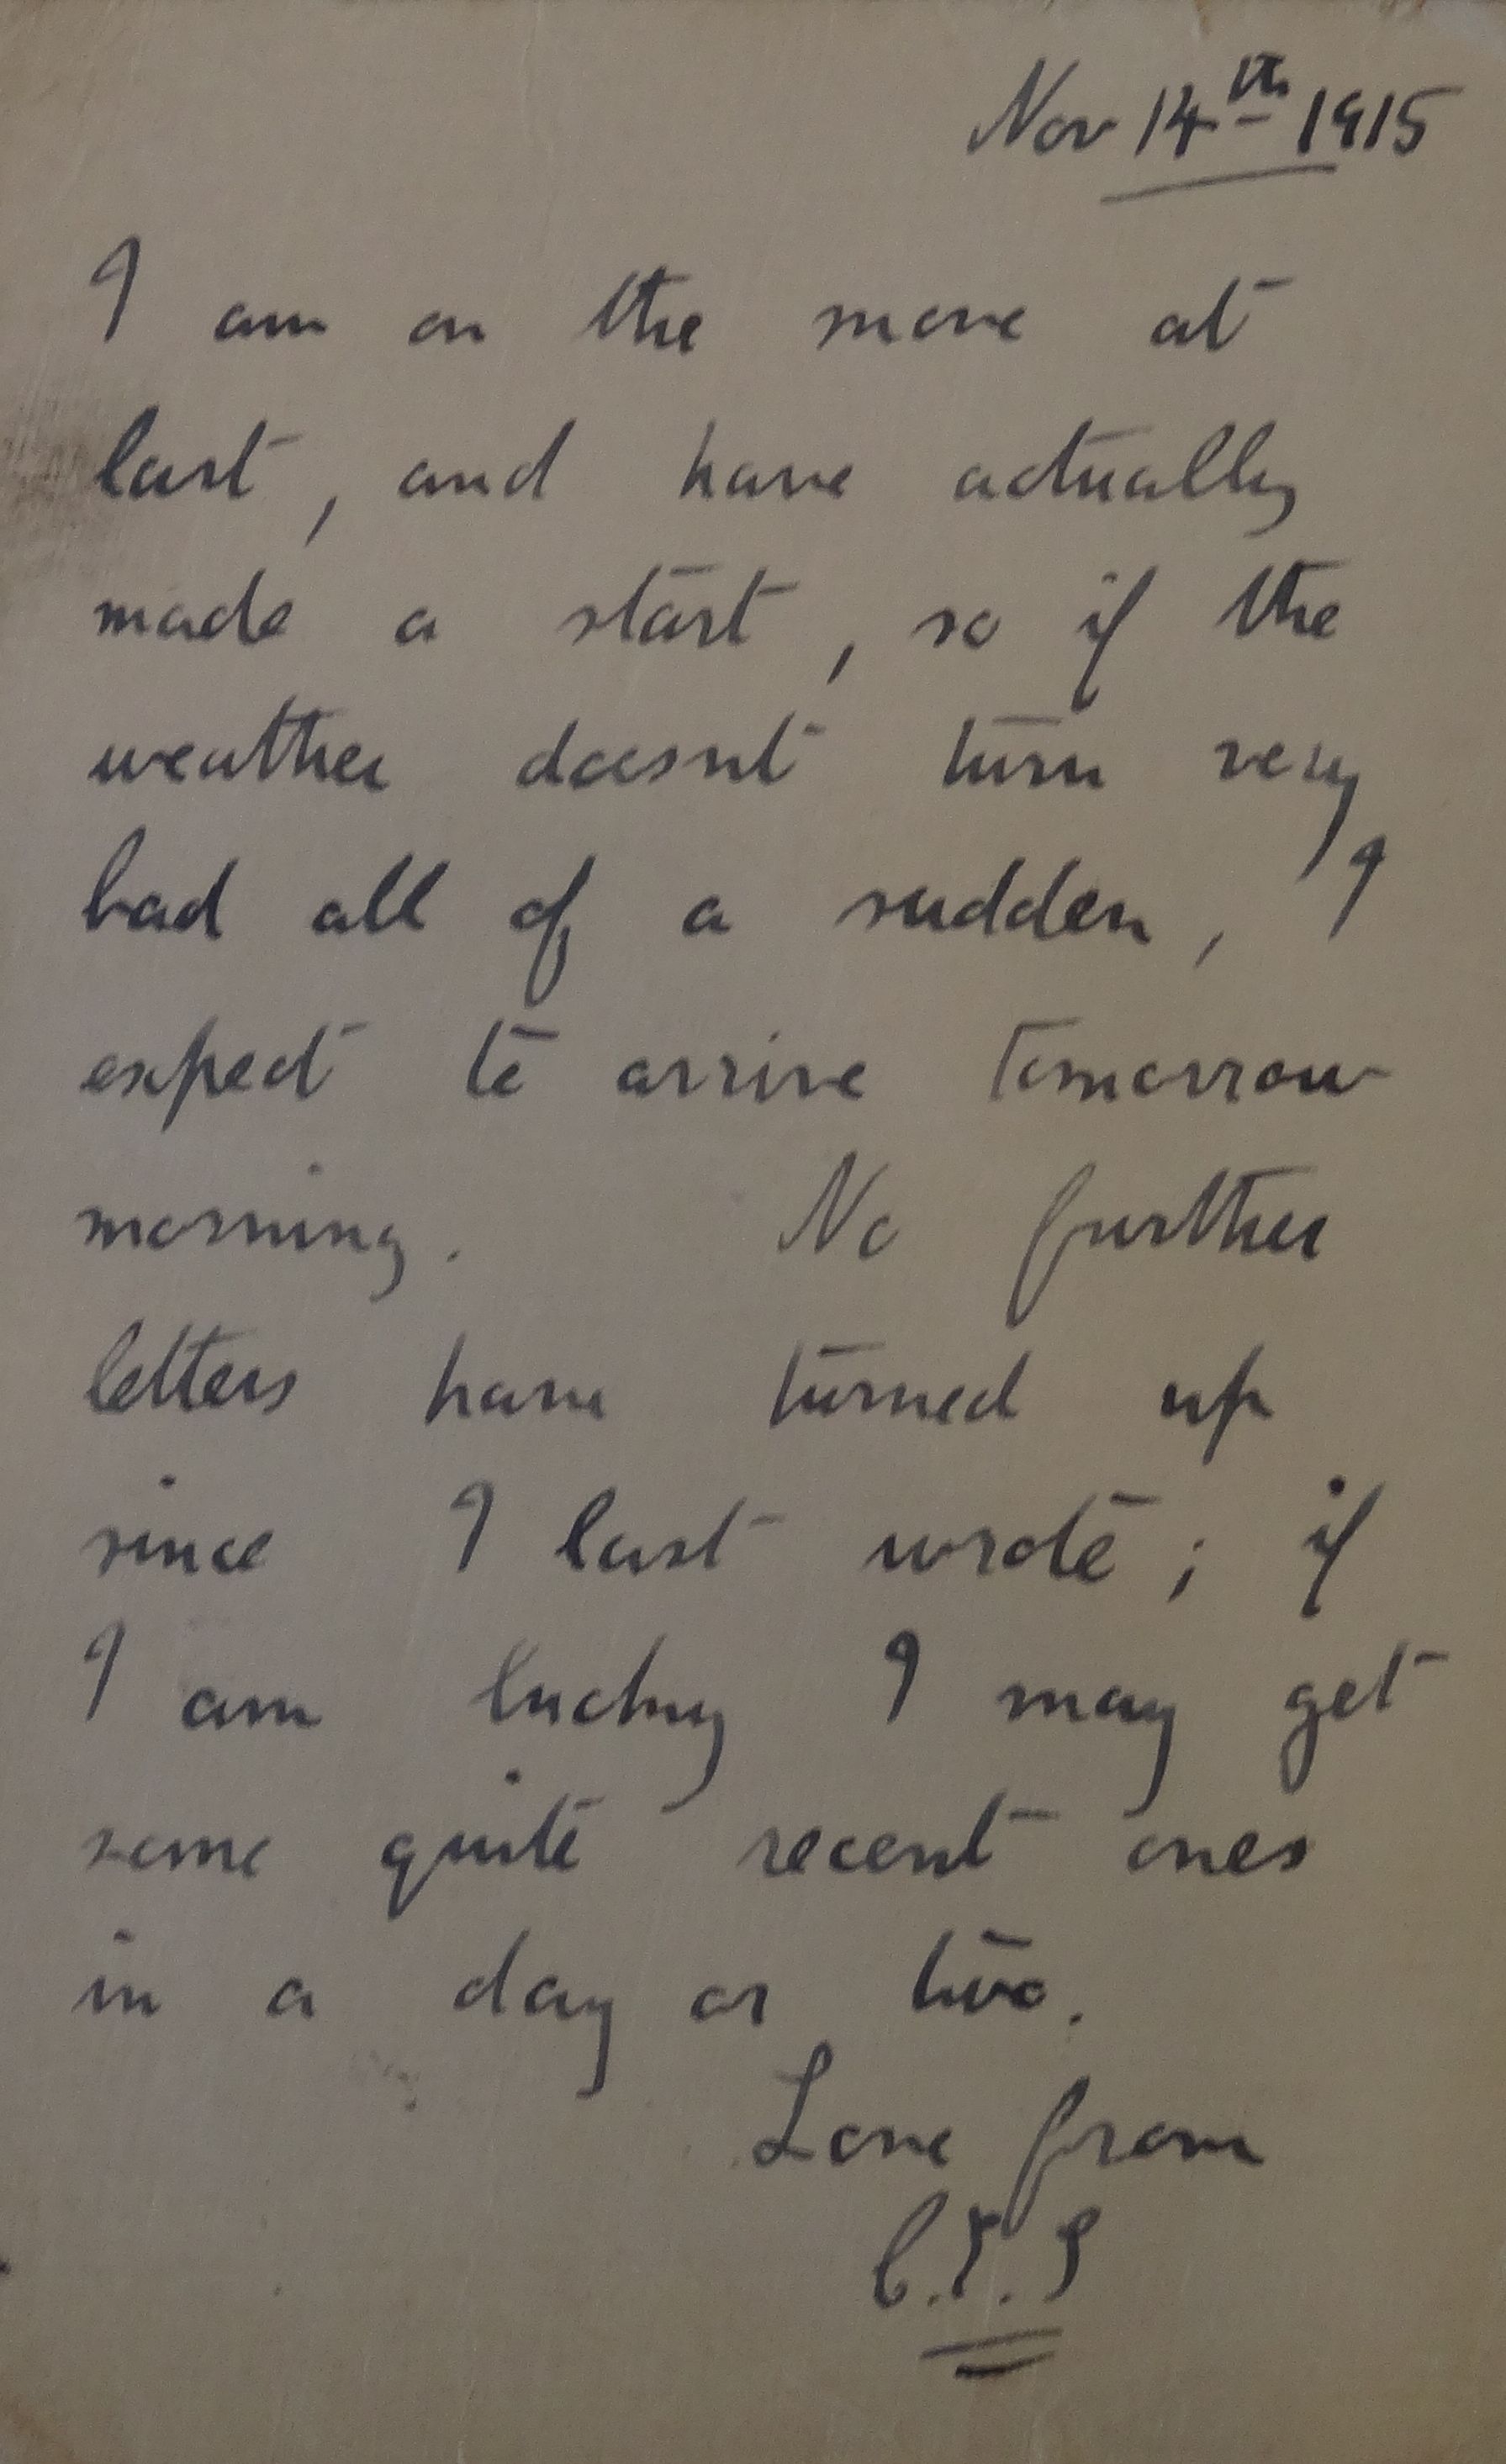 Nov 14th 1915
I am on the move at
last, and have actually
made a start, so if the
weather doesnt turn very
bad all of a sudden, I
expect to arrive tomorrow
morning. No further
letters have turned up
since I last wrote; if
I am lucky I may get
some quite recent ones
in a day or two.
Love from